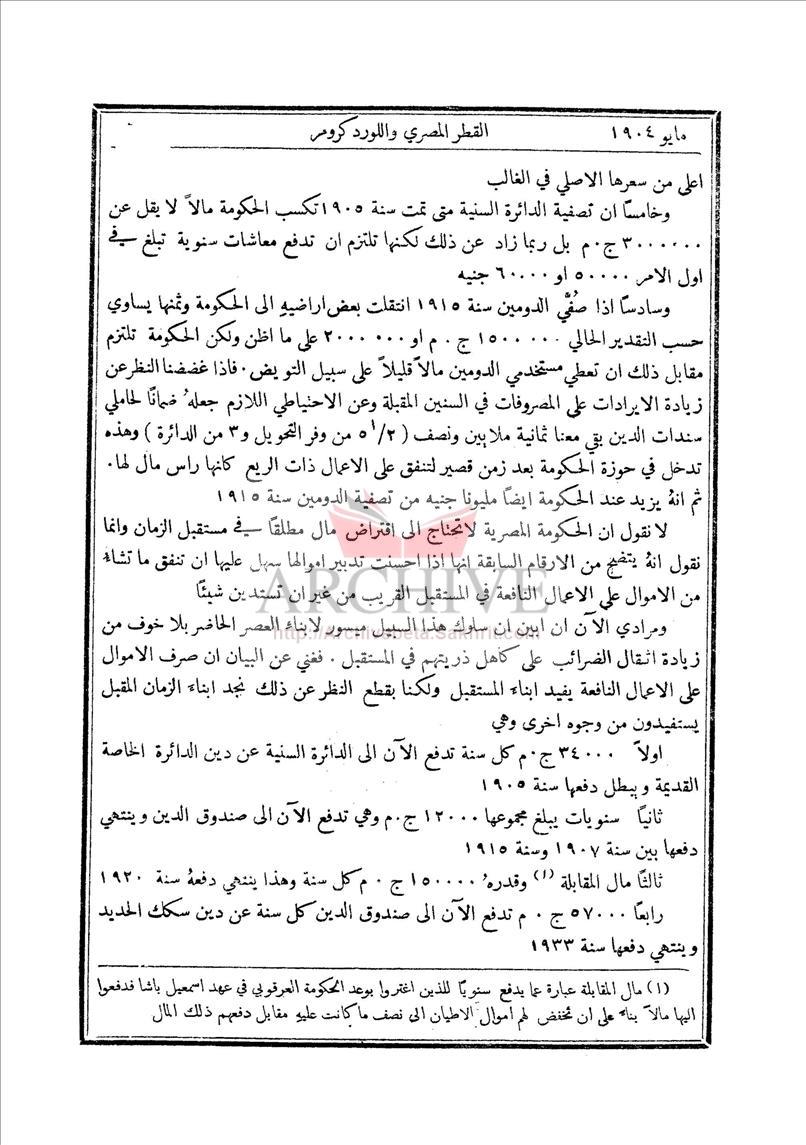 مايو ١٩٠٤
القطر المصري واللورد كرومر
اعلى من سعرها الاصلي في الغالب
وخامسًا ان تصفية الدائرة السنية متى تمت سنة ١٩٠٥ تكسب الحكومة مالاً لا يقل عن
٣٠٠٠٠٠٠ ج٠م بل ربما زاد عن ذلك لكنها تلتزم ان تدفع معاشات سنوية تبلغ في
اول الامر ٥٠٠٠٠ او ٦٠٠٠٠ جنيه
وسادسًا اذا صُفّي الدومين سنة ١٩١٥ انتقلت بعض اراضيهِ الى الحكومة وثمنها يساوي
حسب التقدير الحالي ١٥٠٠٠٠٠ ج ٠ م او ٢٠٠٠٠٠٠ على ما اظن ولكن الحكومة تلتزم
مقابل ذلك ان تعطي مستخدمي الدومين مالاً قليلاً على سبيل التويض ٠ فاذا غضضنا النظر عن
زيادة الايرادات على المصروفات في السنين المقبلة وعن الاحتياطي اللازم جعلهُ ضمانًا لحاملي
سندات الدين بقي معنا ثمانية ملايين ونصف ( ٥ ١/٢ من وفر التحويل و٣ من الدائرة ) وهذه
تدخل في حوزة الحكومة بعد زمن قصير لتنفق على الاعمال ذات الريع كانها راس مال لها ٠
ثم انهُ يزيد عند الحكومة ايضًا مليونا جنيه من تصفية الدومين سنة ١٩١٥
لا نقول ان الحكومة المصرية لا تحتاج الى اقتراض مال مطلقًا في مستقبل الزمان وانما
نقول انهُ يتضح من الارقام السابقة انها اذا احسنت تدبير اموالها سهل عليها ان تنفق ما تشاء
من الاموال على الاعمال النافعة في المستقبل القريب من غير ان تستدين شيئًا
ومرادي الآن ان ابين ان سلوك هذا السبيل ميسور لابناء العصر الحاضر بلا خوف من
زيادة اثقال الضرائب على كاهل ذريتهم في المستقبل ٠ فغني عن البيان ان صرف الاموال
على الاعمال النافعة يفيد ابناء المستقبل ولكنا بقطع النظر عن ذلك نجد ابناء الزمان المقبل
يستفيدون من وجوه اخرى وهي
اولاً ٣٤٠٠٠ ج٠م كل سنة تدفع الآن الى الدائرة السنية عن دين الدائرة الخاصة
القديمة ويبطل دفعها سنة ١٩٠٥
ثانيًا سنويات يبلغ مجموعها ١٢٠٠٠ ج٠م وهي تدفع الآن الى صندوق الدين وينتهي
دفعها بين سنة ١٩٠٧ وسنة ١٩١٥
ثالثًا مال المقابلة (١) وقدرهُ ١٥٠٠٠٠ ج ٠ م كل سنة وهذا ينتهي دفعهُ سنة ١٩٢٠
رابعًا ٥٧٠٠٠ ج ٠ م تدفع الآن الى صندوق الدين كل سنة عن دين سكك الحديد
وينتهي دفعها سنة ١٩٣٣
(١) مال المقابلة عبارة عما يدفع سنويًا للذين اغتروا بوعد الحكومة العرقوبي في عهد اسمعيل باشا فدفعوا
اليها مالاً بناءً على ان تخفض لهم اموال الاطيان الى نصف ما كانت عليهِ مقابل دفعهم ذلك المال
ARCHIVE
http://Archivebeta.Sakhrit.com